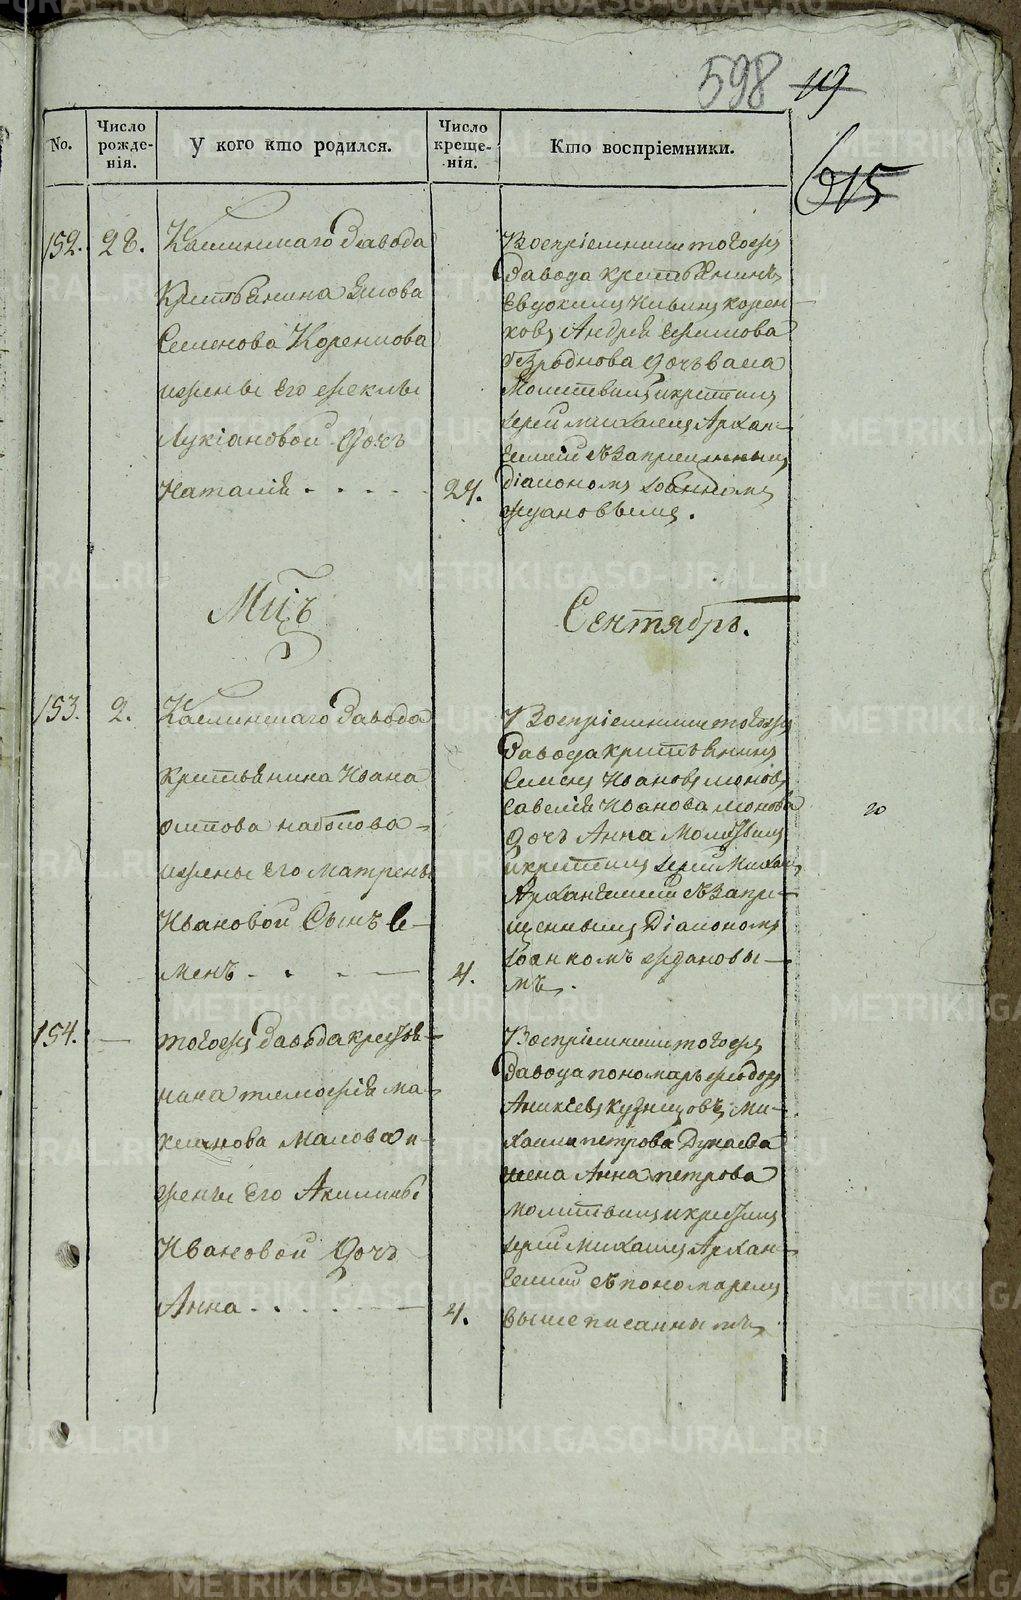 598 119
615
No.
Число рожде-нія.
У кого кто родился.
Число креще-нія.
Кто воспріемники.
152. 28. Каслинскаго Завода
Крестьянина
Семенова Коренкова
жены Его Феклы
Лукіановой Дочь
Наталія . . . . 29.
Воспріемники тогожъ
Завода крестьянинъ
Евдокимъ Корен-
ковъ Андрея
дочь
Молитвилъ и крестилъ
Іерей Михаилъ Архан-
гельскій съ Запрещеннымъ
Діакономъ Іоанномъ
Ждановымъ.
Мцъ Сентябрь.
153. 2. Каслинскаго Завода
Крестьянина Ивана
жены Его Матрены
Ивановой Сынъ Се-
менъ - . . — 4.
Воспріемники тогожъ
Завода крестьянинъ
Семенъ Ивановъ
Савелія Иванова
дочь Анна Молитвилъ
и крестилъ Іерей Михаилъ
Архангельскій съ Запре-
щеннымъ Діакономъ
Іоанномъ Жрдановы-
мъ.
154. — тогожъ Завода крестья-
нина Тимофея Ма-
ксимова
жены Его Акилины
Ивановой Дочь
Анна . . . . . . — 4.
Воспріемники тогожъ
Завода пономарь Феодоръ
Аникіевъ Кузнецовъ, Ми-
хаила петрова Дунаева
жена Анна петрова
молитвилъ и крестилъ
Іерей Михаилъ Архан-
гельскій съ пономаремъ
вышеписаннымъ
METRIKI.GASO-URAL.RU